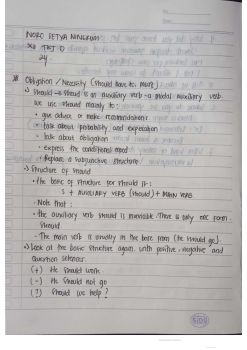 No:
Date:
NORC SETYA NINGRUM
XII TKJ D
24
* Obligation / Necessity (Should, have to, must)
> Should → Should is an auxiliary verb - a modal auxiliary verb.
We use should mainly to:
• give advice or make recommendation
• talk about probability and expectation
• talk about obligation
• express the conditional mood
• Replace a subjunctive structure.
> Structure of should
• the basic of structure for should is:
S + AUXILIARY VERB (should) + MAIN VERB
• Note that:
- the auxiliary verb should is invariable. There is only one form:
should
- The main verb is usually in the base from (he should go).
> Look at the basic structure again, with positive, negative and
question sentence.
(+) He should work
(-) He should not go
(?) Should we help?